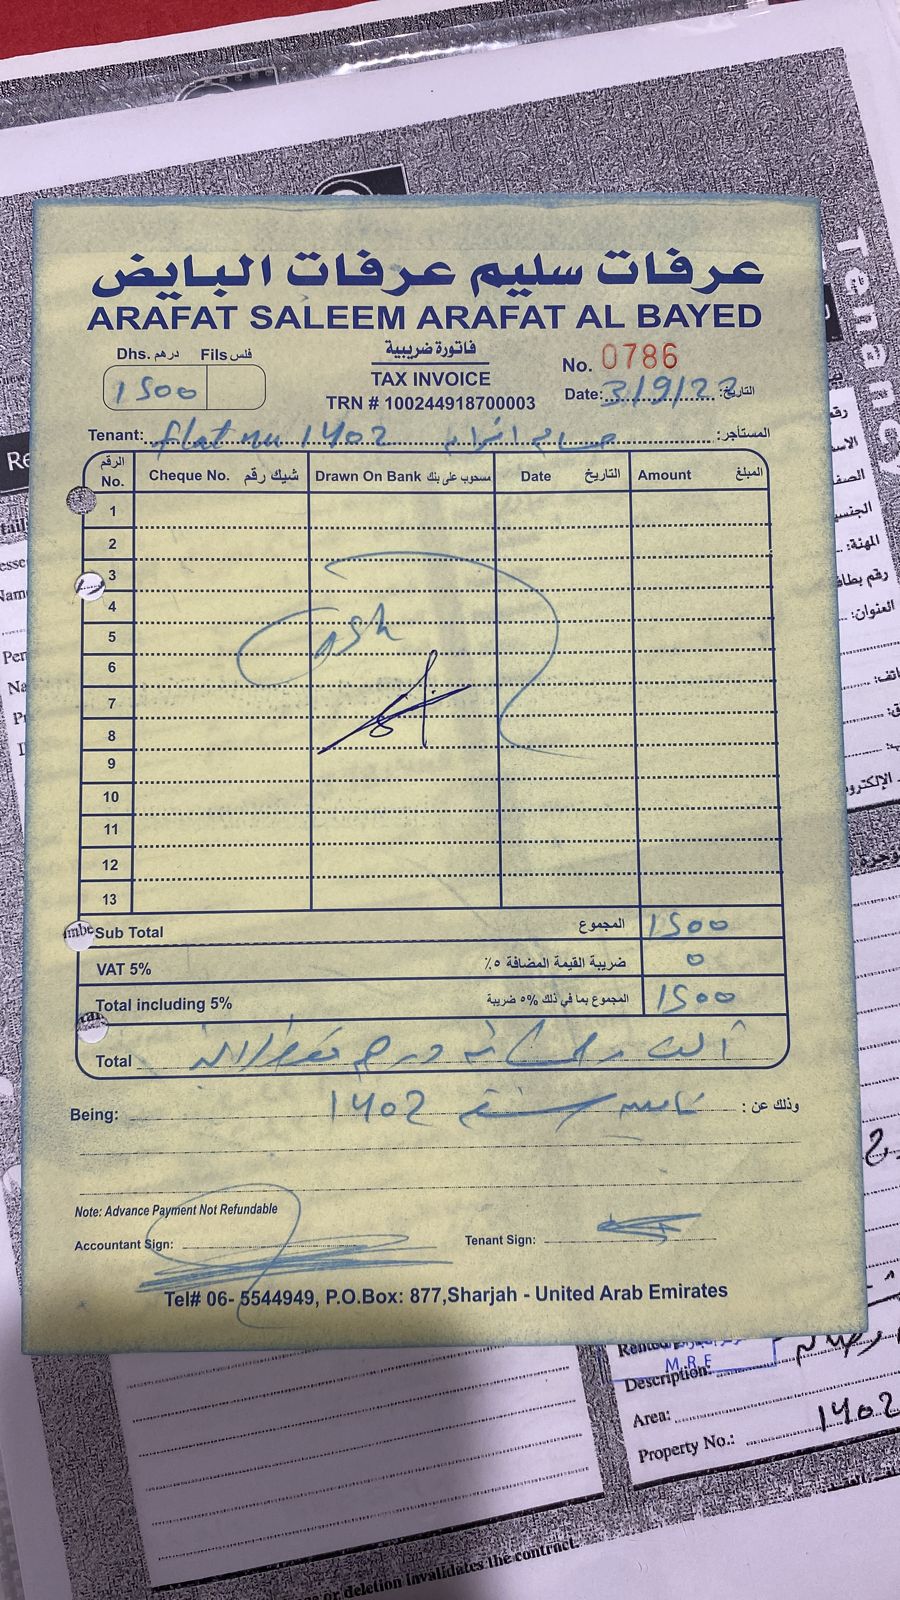 عرفات سليم عرفات البايض
ARAFAT SALEEM ARAFAT AL BAYED
Dhs. درهم Fils فلس
1500
فاتورة ضريبية
TAX INVOICE
TRN # 100244918700003
No. 0786
Date: 3/9/22 التاريخ:
Tenant: flat 1402 المستأجر:
No. الرقم Cheque No. شيك رقم Drawn On Bank مسحوب على بنك Date التاريخ Amount المبلغ
1
2
3
4
5
6
7
8
9
10
11
12
13
Cash
Sub Total المجموع 1500
VAT 5% ضريبة القيمة المضافة ٥٪ 0
Total including 5% المجموع بما في ذلك ٥% ضريبة 1500
Total
Being: 1402 وذلك عن:
Note: Advance Payment Not Refundable
Accountant Sign: Tenant Sign:
Tel# 06- 5544949, P.O.Box: 877,Sharjah - United Arab Emirates
Tenancy
المهنة:
العنوان:
M.R.E
Description:
Area:
Property No.: 1402
or deletion invalidates the contract.